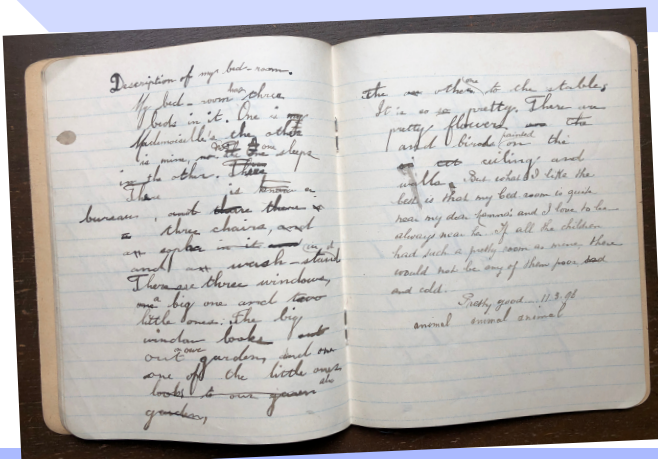 Description of my bed-room.
My bed-room has three
beds in it. One is my
Mademoiselle's the other
is mine, no one sleeps
in the other.
There is a
bureau, and there is
three chairs, and
a sopha in it
and a wash-stand
There are three windows,
a big one and two
little ones. The big
window looks
out our garden, and one
one off the little ones
looks to our
garden,
the other one to the stables
It is so pretty. There are
pretty flowers the
and birds painted on the
ceiling and
walls, But what I like the
best is that my bed room is quite
near my dear and I love to be
always near her. If all the children
had such a pretty room as mine, there
would not be any of them poor, sad
and cold.
Pretty good 11.3.
animal animal animal